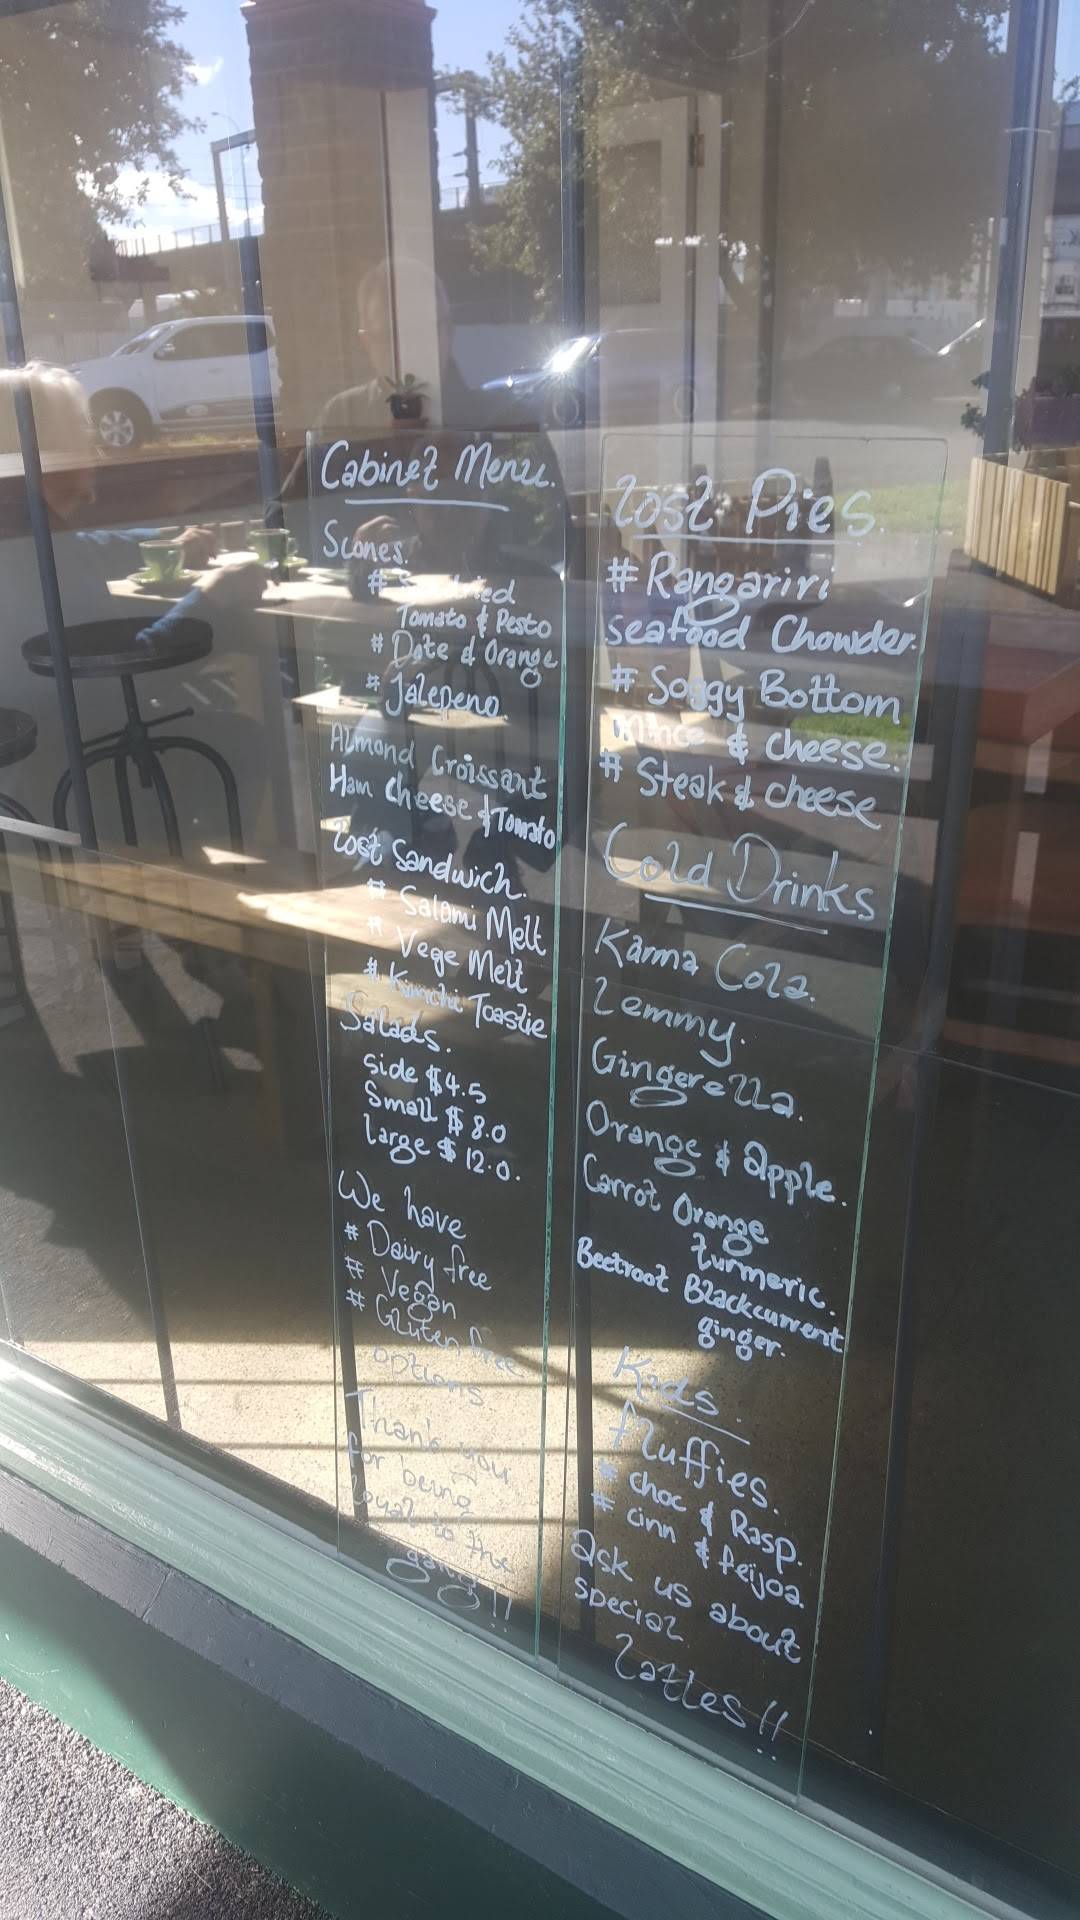 Cabinet Menu.
Scones.
#
Tomato & Pesto
# Date & Orange
# Jalepeno.
Almond Croissant
Ham Cheese & Tomato
Lost Sandwich.
# Salami Melt
# Vege Melt
# Kimchi Toastie
Salads.
side $4.5
Small $8.0
large $12.0.
We have
# Dairy free
# Vegan
# Gluten free
options
Thank you
for being
loyal to the
gang!!
Lost Pies.
# Rangariri
seafood Chowder.
# Soggy Bottom
Mince & cheese.
# Steak & cheese
Cold Drinks
Karma Cola.
Lemmy.
Gingerella.
Orange & apple.
Carrot Orange
turmeric.
Beetroot Blackcurrent
ginger.
Kids.
fluffies.
# choc & Rasp.
# cinn & feijoa.
ask us about
special
Lattes!!